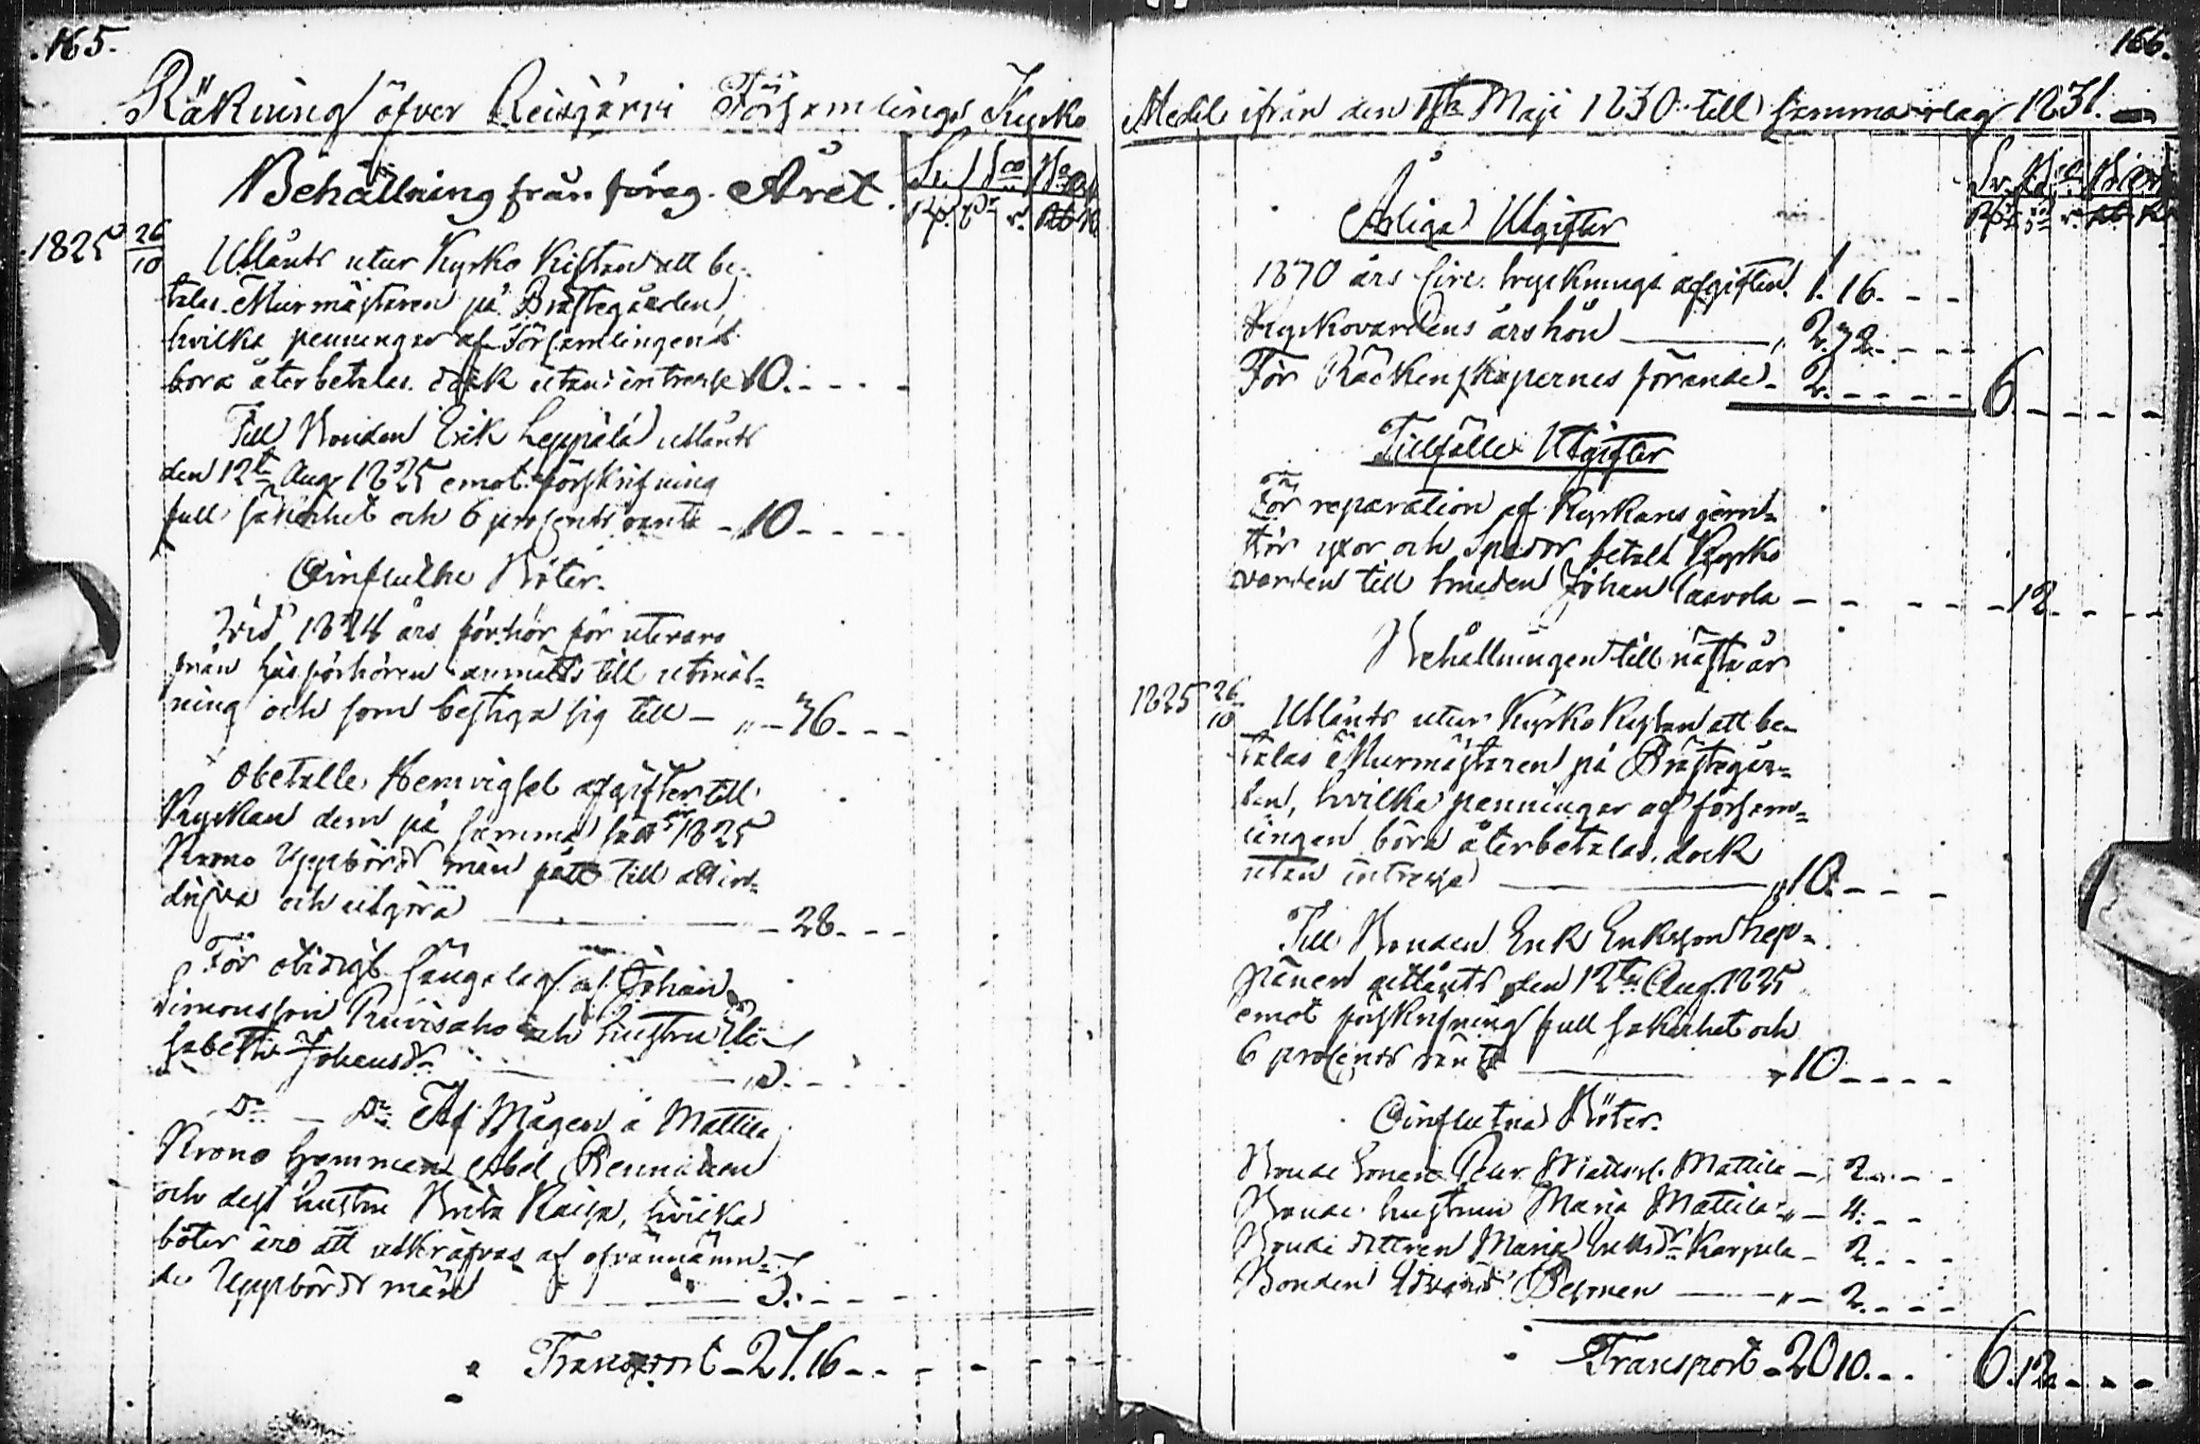 165.
Räkning öfver Reisjärvi Församlings Kyrko
Behållning från föreg. Året.
Sv. Bco
1825 26/10 Utlånts utur Kyrko Kistan att be-
talas Murmästaren på Prästegården,
hvilka penningar af Församlingen
böra återbetalas dock utan intresse 10.
Till Bonden Erik Leppälä utlånts
den 12te Aug. 1825 emot förskrifning
full säkerhet och 6 procents ranta - 10
Oinflutne Böter.
Vid 1824 års förhör för utevaro
från läsförhören anmälts till utmät-
ning och som bestiga sig till - " - 36.
Obetalte Hemvigsel afgifter till
Kyrkan dem på samma satt 1825
Krono Uppbörds män påtts till att in-
drifva och utgöra - 28.
För otidigt sängelag af Johan
Simonsson Kiviaho och hustru Eli-
sabeth Johansdr 3.
Do - Do Af Mågen å Mattila
Krono hemman Abel Renninen
och dess hustru Brita Kaisa, hvilka
böter äro att utkräfvas af ofvannämn-
de Uppbörds män 3.
Transport - 27.16
166.
Medel ifrån den 1sta Maji 1830 till samma dag 1831.
Årliga Utgifter
1830 års Circ. trycknings afgiften 1.16.
Kyrkovardens årslön 2.32.
För Räckenskapernes förande 2. 6
Tillfälle Utgifter
För reparation af Kyrkans
yxor och Spador betalt Kyrko
varden till smeden Johan Saarola 12.
Behållningen till nästa år
1825 26/10 Utlånts utur Kyrko Kistan att be-
talas Murmästaren på Prästegår-
den, hvilka penningar af försam-
lingen böra återbetalas, dock
utan intresse " 10.
Till Bonden Erik Eriksson Lep-
pänen utlånts den 12te Aug. 1825
emot förskrifning full säkerhet och
6 procents ränta " 10
Oinflutna Böter.
Bonde Sonen Petter Mattss. Mattila - 2.
Bonde hustrun Maria Mattila " - 4.
Bonde dottren Maria Karpula - 2.
Bonden 2.
Transport - 20 10. 6.12.